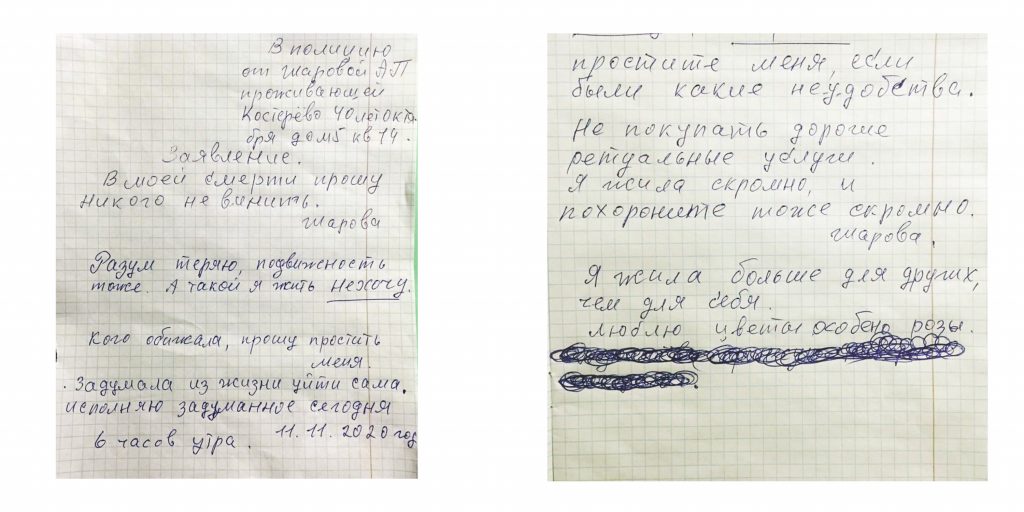 В полицию
от Жаровой АП
проживающей
Костерёво 40летоктя
бря дом5 кв 14.
Заявление.
В моей смерти прошу
никого не винить.
Жарова
Разум теряю, подвижность
тоже. А такой я жить нехочу.
Кого обижала, прошу простить
меня.
Задумала из жизни уйти сама.
исполняю задуманное сегодня
6 часов утра. 11.11.2020 год
простите меня, если
были какие неудобства.
Не покупать дорогие
ретуальные услуги.
Я жила скромно, и
похороните тоже скромно.
Жарова.
Я жила больше для других,
чем для себя.
люблю цветы особено розы.